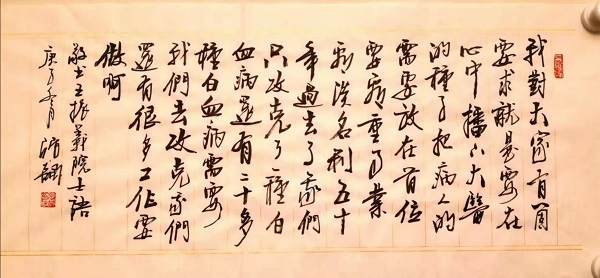 我對大家有箇
要求就是要在
心中播下大醫
的種子把病人的
需要放在首位
要看重事業
看淡名利五十
年過去了我們
只攻克了一種白
血病還有二十多
種白血病需要
我們去攻克我們
還有很多工作要
做啊
敬书王振義院士語
庚子冬月